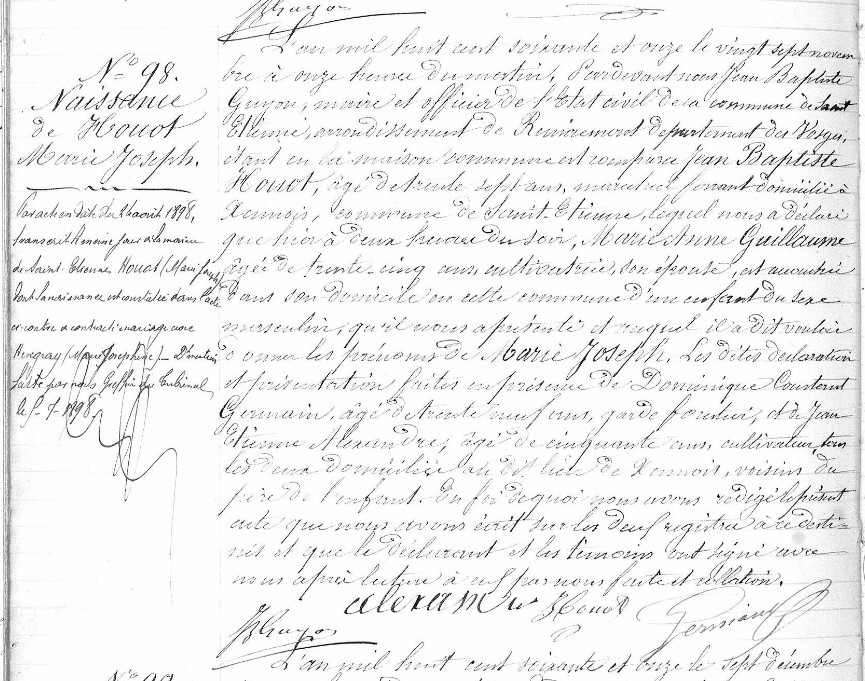 JBGuyon
L'an mil huit cent soixante et onze le vingt sept novem
bre à onze heures du matin, Pardevant nous Jean Baptiste
Guyon, maire et officier de l'Etat civil de la commune de Saint
Etienne, arrondissement de Remiremont département des Vosges,
étant en la maison commune est comparu Jean Baptiste
Houot, âgé de trente sept ans, maréchal ferrant domicilié à
Xennois, commune de Saint-Etienne, lequel nous a déclaré
que hier à deux heures du soir, Marie Anne Guillaume
âgée de trente-cinq ans, cultivatrice, son épouse, est accouchée
Dans son domicile en cette commune d'un enfant du sexe
masculin, qu'il nous a présenté et auquel il a dit vouloir
donner les prénoms de Marie Joseph. Les dites déclaration
et présentation faites en présence de Dominique Constant
Germain, âgé de trente neuf ans, garde forestier, et de Jean
Etienne Alexandre, âgé de cinquante ans, cultivateur, tous
les deux domiciliés au dit lieu de Xennois, voisins du
père de l'enfant. En foi de quoi nous avons rédigé le présent
acte que nous avons écrit sur les deux registres à ce desti-
nés et que le déclarant et les témoins ont signé avec
nous après lecture à eux par nous faite et collation.
alexandre Houot Germain
JBGuyon
L'an mil huit cent soixante et onze le sept décembre
No 98.
Naissance
de Houot
Marie Joseph.
Par acte en date du août 1898,
transcrit le même jour à la mairie
de Saint-Etienne, Houot (Marie Joseph)
dont la naissance est constatée dans l'acte
ci-contre a contracté mariage avec
(Marie Joséphine) – D. mention
faite par nous Greffier du Tribunal,
1898
No 99